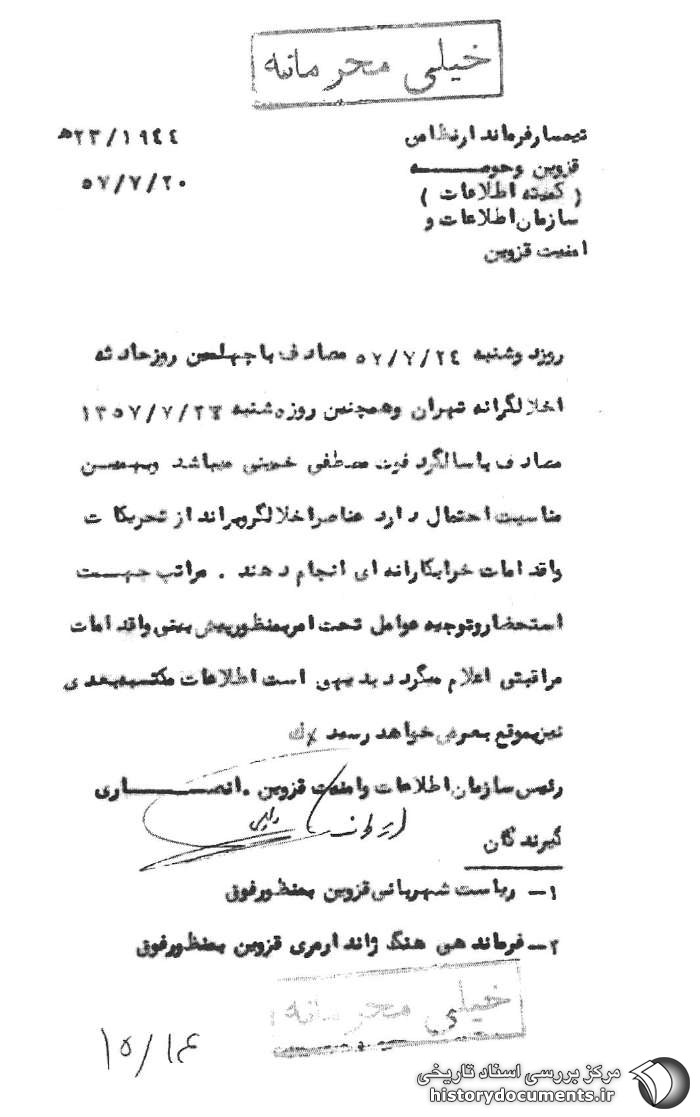 خیلی محرمانه
تیمسار فرماندار نظامی
۲۳/۱۹۴۴ﻫ
قزوین وحومـــــه
۵۷/۷/۲۰
( کمیته اطلاعات )
سازمان اطلاعات و
امنیت قزوین
روزدوشنبه ۵۷/۷/۲۴ مصادف با چهلمین روزحادثه
اخلالگرانه تهران وهمچنین روز شنبه ۱۳۵۷/۷/۲۹
مصادف باسالگرد فوت مصطفی خمینی میباشد وبهمین
مناسبت احتمال دارد عناصراخلالگروبراندازتحریکات
واقدامات خرابکارانه ای انجام دهند . مراتب جهت
استحضاروتوجیه عوامل تحت امربمنظورپیش بینی واقدامات
مراقبتی اعلام میگردد بدیهی است اطلاعات مکتسبه بعدی
نیزبموقع بعرض خواهد رسید
رئیس سازمان اطلاعات وامنیت قزوین . انصـــــاری
گیرندگان
۱- ریاست شهربانی قزوین بمنظورفوق
۲- فرماندهی هنگ ژاندارمری قزوین بمنظورفوق
خیلی محرمانه
۱۵/۱۴
مرکز بررسی اسناد تاریخی
historydocuments.ir